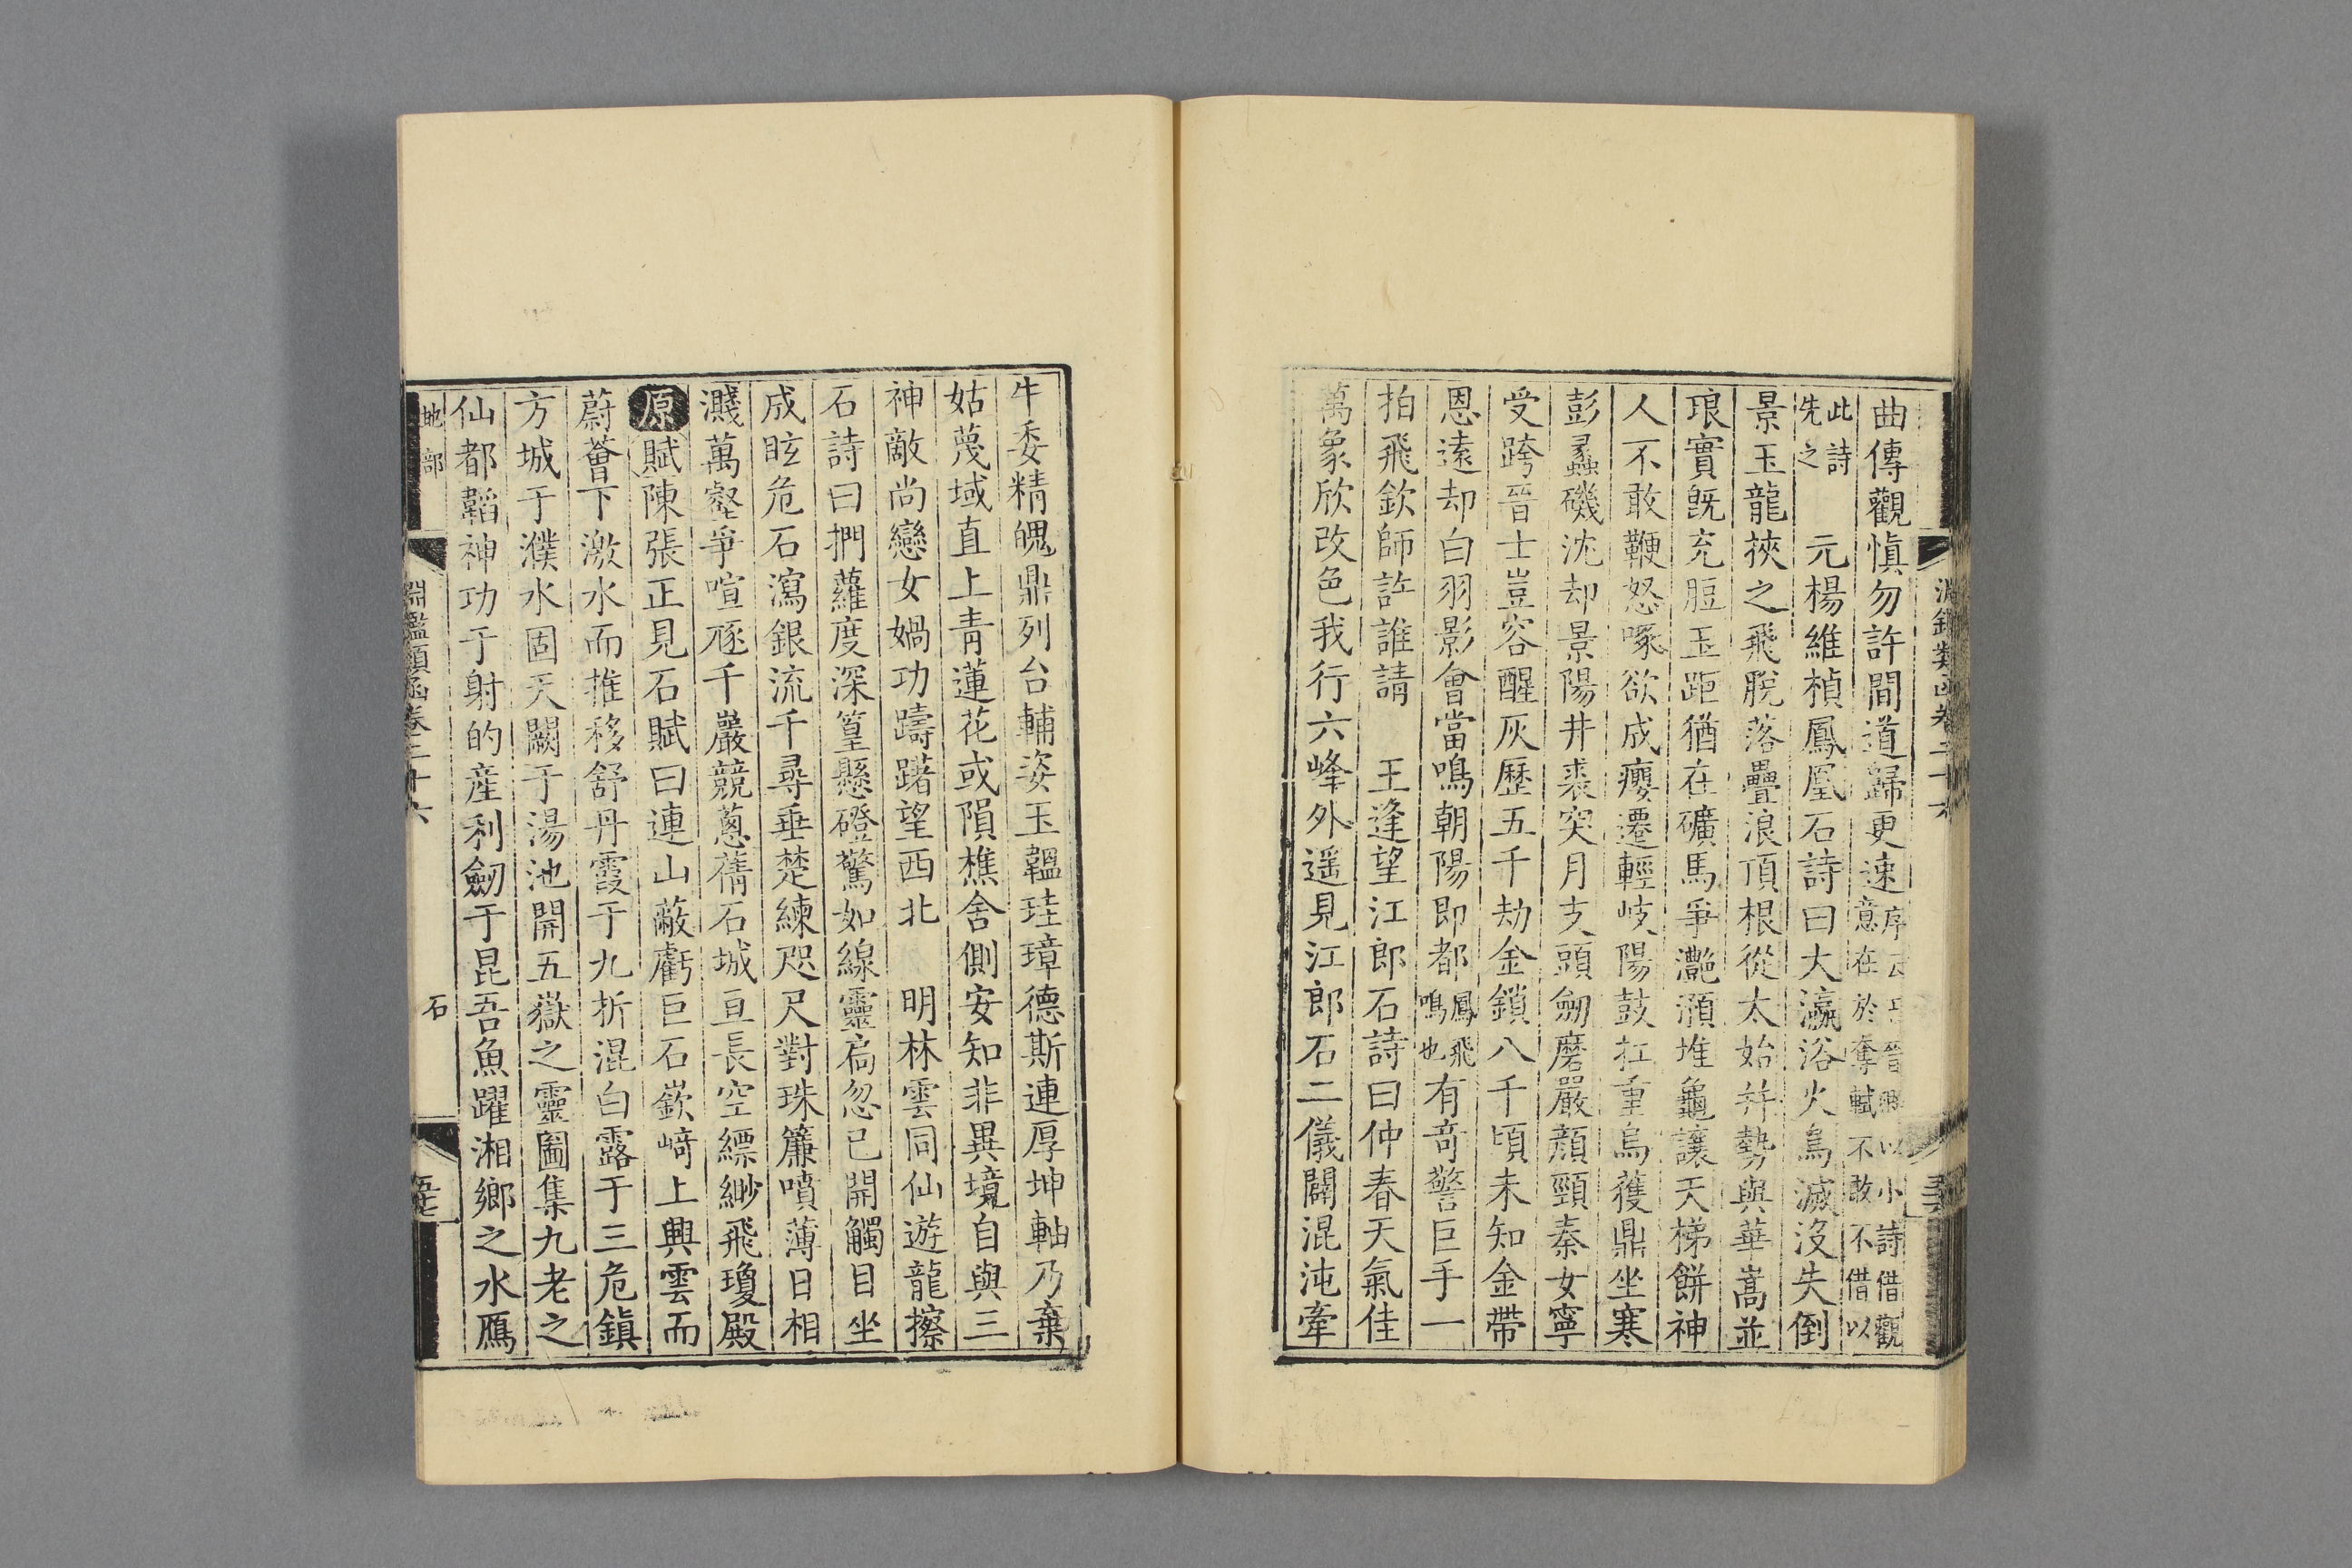 曲傳觀愼勿許間道歸更速序云王晉卿以小詩借觀意在於奪軾不敢不借以
此詩先之　元楊維楨鳳凰石詩曰大瀛浴火鳥滅沒失倒
景玉龍挾之飛脫落疊浪頂根從太始幷勢與華嵩並
琅實旣充脰玉距猶在礦馬爭灔澦堆龜讓天梯餅神
人不敢鞭怒啄欲成癭遷輕岐陽鼓扛重烏獲鼎坐寒
彭蠡磯沈却景陽井裘突月支頭劒磨嚴顔頸秦女寧
受跨晉士豈容醒灰歷五千劫金鎖八千頃未知金帶
恩遠却白羽影會當鳴朝陽即都鳳飛鳴也有竒警巨手一
拍飛欽師許誰請　王逢望江郎石詩曰仲春天氣佳
萬象欣改色我行六峰外遥見江郎石二儀闢混沌牽
牛委精魄鼎列台輔姿玉韞珪璋德斯連厚坤軸乃棄
姑蔑域直上青蓮花或隕樵舍側安知非異境自與三
神敵尚戀女媧功躊躇望西北　明林雲同仙遊龍擦
石詩曰捫蘿度深篁懸磴驚如線靈扃忽已開觸目坐
成眩危石瀉銀流千尋垂楚練咫尺對珠簾噴薄日相
濺萬壑爭喧豗千巖競蔥蒨石城亘長空縹緲飛瓊殿
原賦陳張正見石賦曰連山蔽虧巨石嶔崎上興雲而
蔚薈下激水而推移舒丹霞于九折混白露于三危鎭
方城于濮水固天闕于湯池開五嶽之靈圖集九老之
仙都韜神功于射的産利劒于昆吾魚躍湘鄉之水鴈
地部
淵鑑類函卷二十六
石